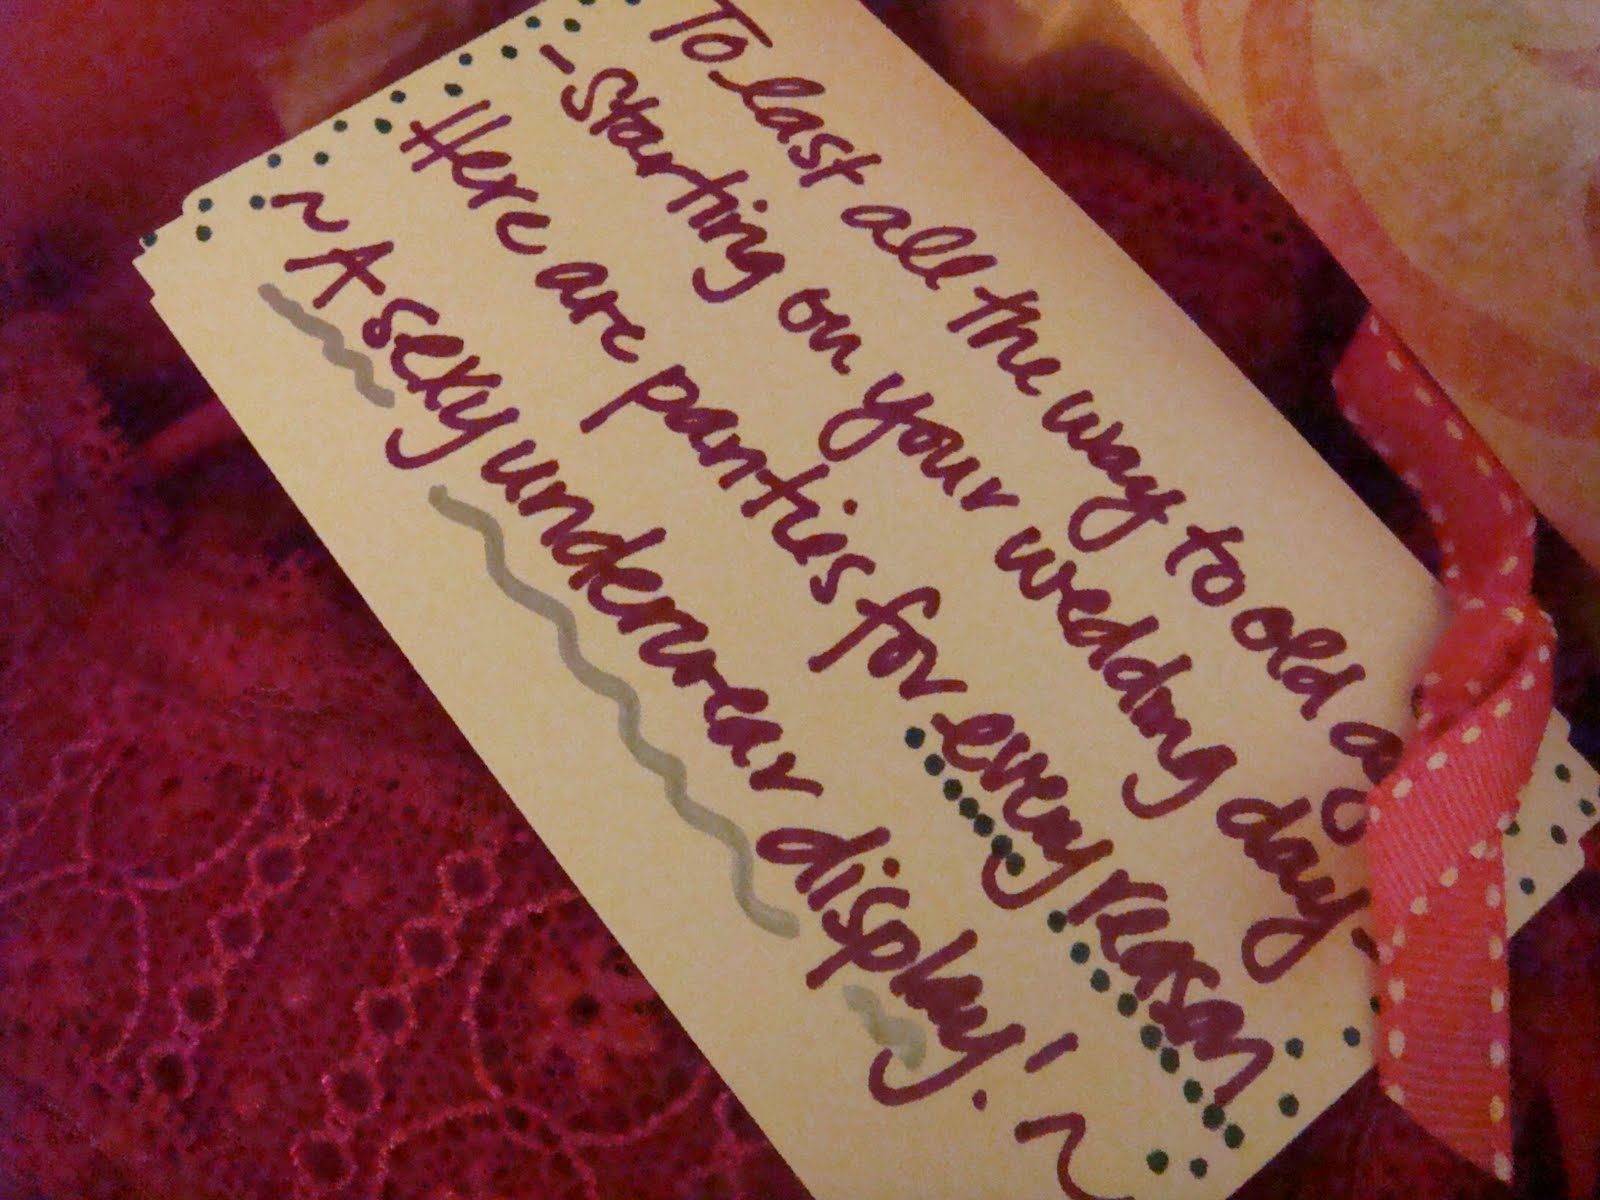 To last all the way to old ag
-Starting on your wedding day-
Here are panties for every reason
~A sexy underwear display!~